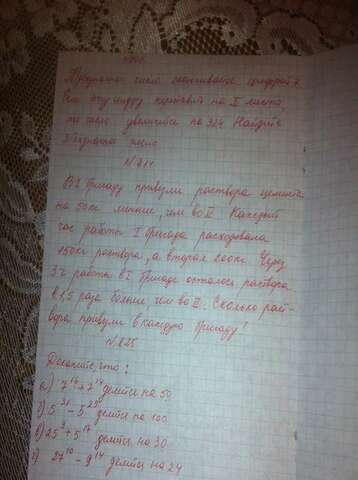 Трёхзначное число оканчивается цифрой 7.
Если эту цифру переставить на I место,
то число увеличится на 324. Найдите
3-значное число.
N 814
В I бригаду привезли раствора цемента
на 50 кг меньше, чем во II. Каждый
час работы I бригада расходовала
150 кг раствора, а вторая 200 кг. Через
3 ч работы в I бригаде осталось раствора
в 1,5 раза больше чем во II. Сколько раст-
вора привезли в каждую бригаду?
N 825
Докажите, что:
а) делится на 50
б) 5³¹ - 5²⁹ делится на 100
в) 25⁹ + 5¹⁷ делится на 30
г) 27¹⁰ - 9¹⁴ делится на 24